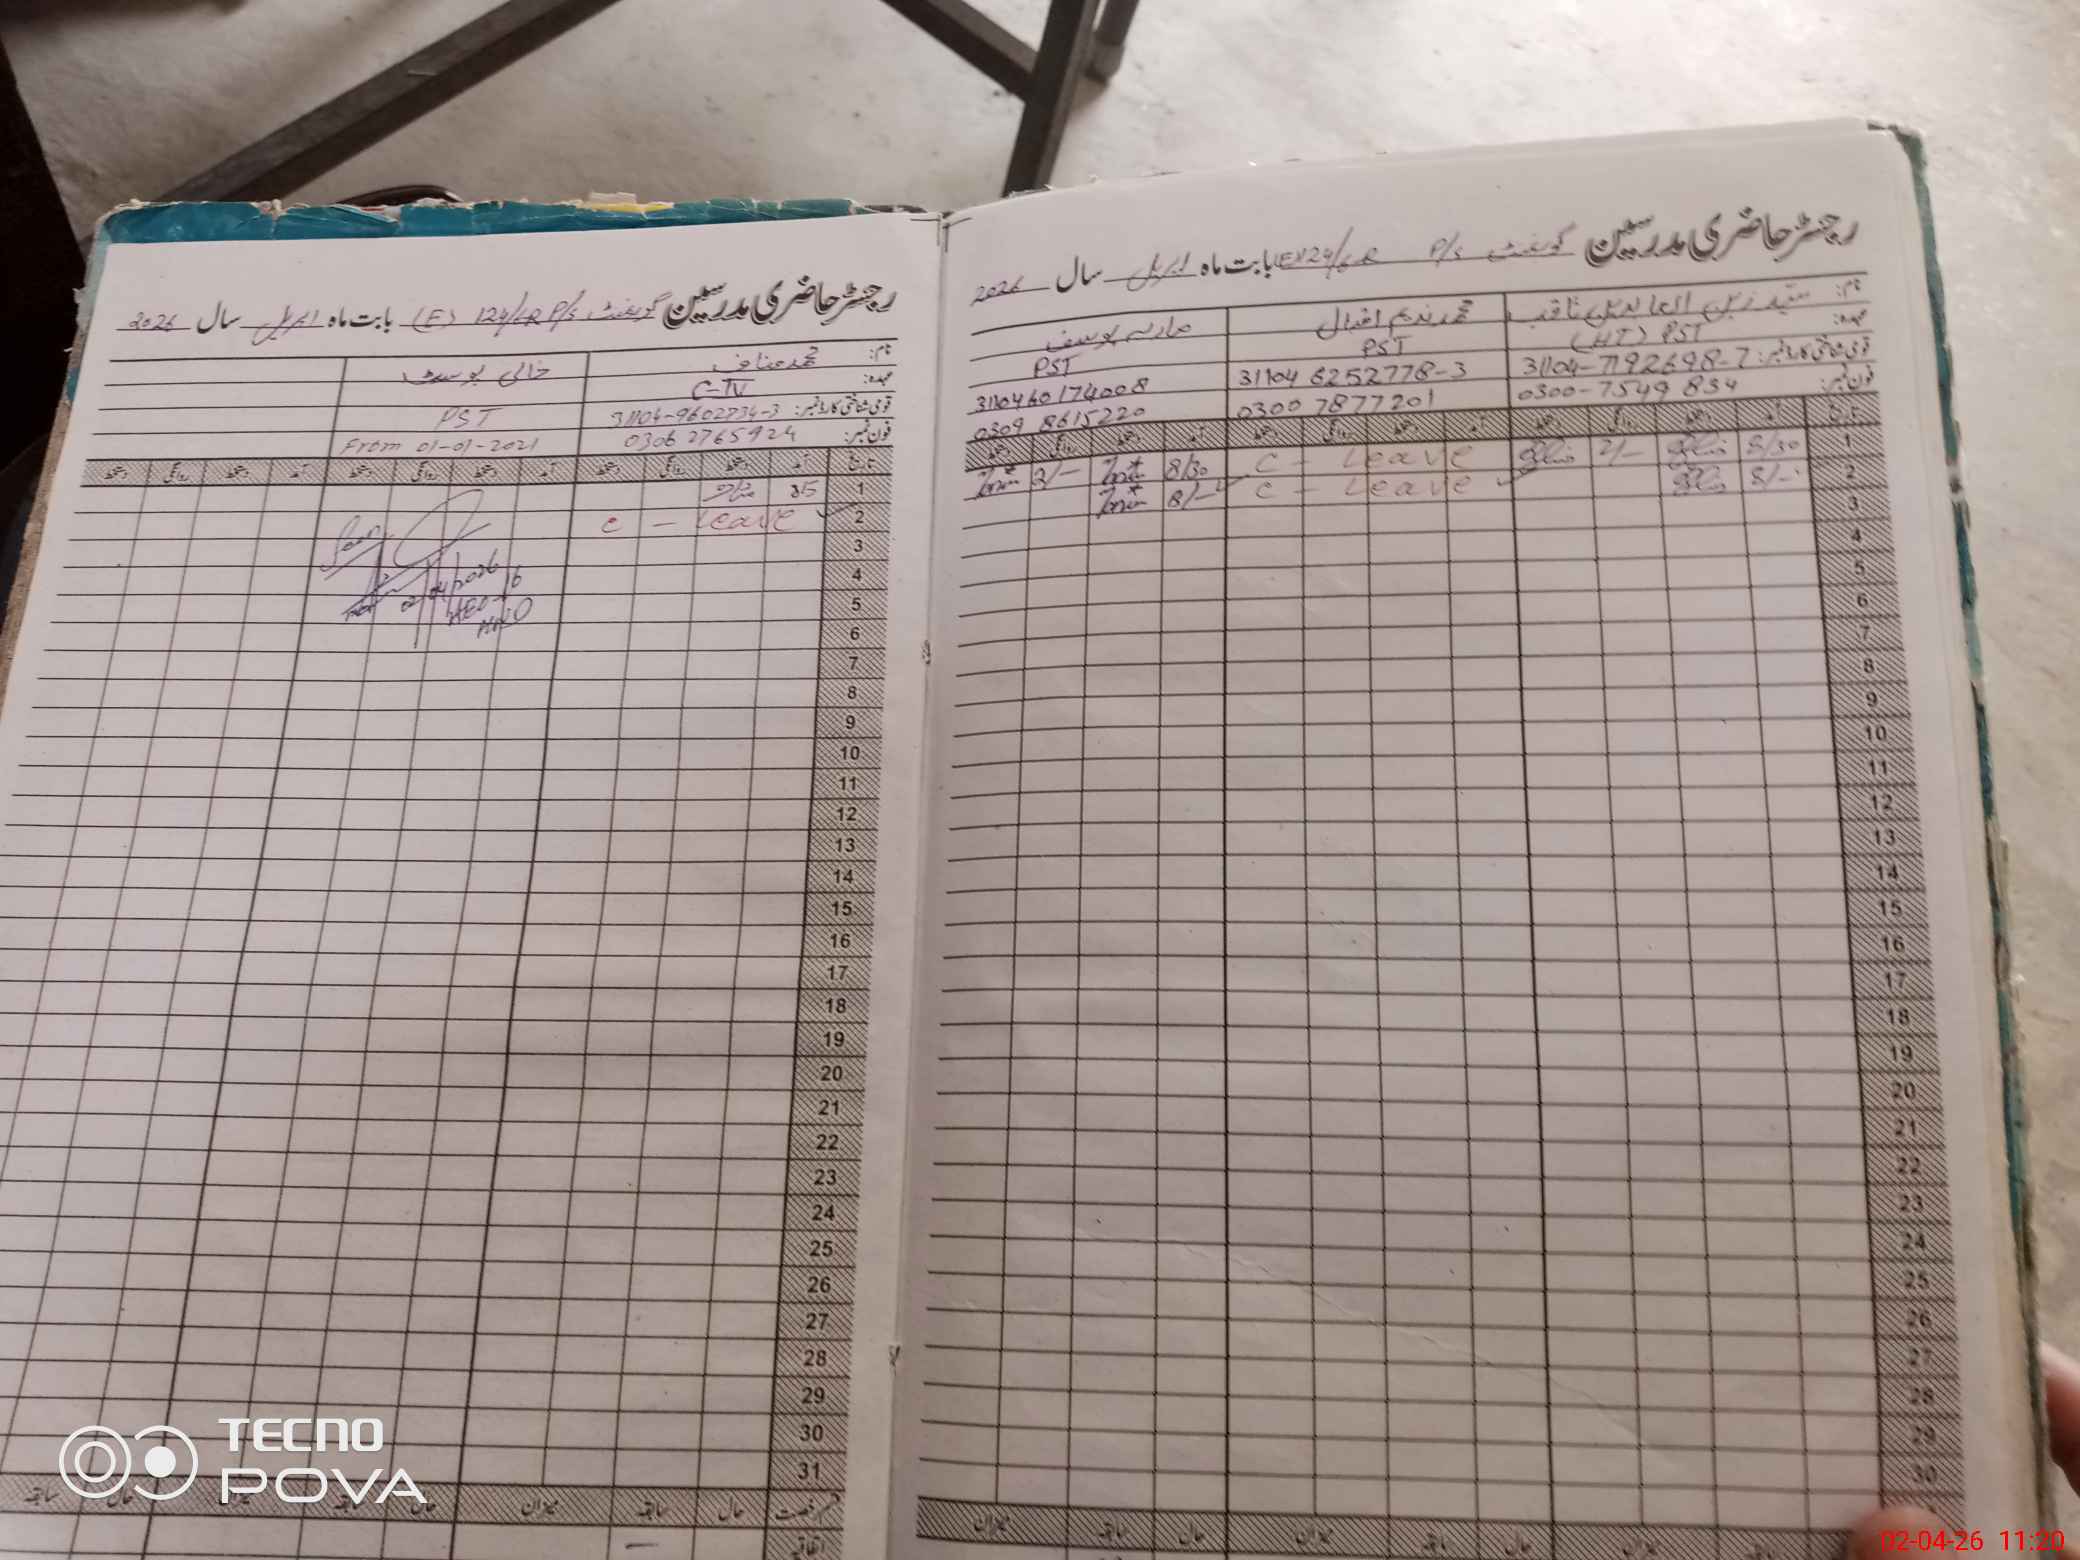 رجسٹر حاضری مدرسین گورنمنٹ P/S 124/6R (E) بابت ماہ اپریل سال 2026
نام: سید زین العابدین ثاقب
محمد ندیم اقبال
ماریہ یوسف
عہدہ: (HT) PST
PST
PST
قومی شناختی کارڈ نمبر: 31104-7192698-7
31104 6252778-3
3110460174008
فون نمبر: 0300-7549834
0300 7877201
0309 8615220
تاریخ آمد دستخط روانگی دستخط آمد دستخط روانگی دستخط آمد دستخط روانگی دستخط
1 8/30 2/- C - Leave 8/30 2/-
2 8/- C - Leave 8/-
3
4
5
6
7
8
9
10
11
12
13
14
15
16
17
18
19
20
21
22
23
24
25
26
27
28
29
30
حال سابقہ میزان حال سابقہ میزان حال سابقہ میزان
رجسٹر حاضری مدرسین گورنمنٹ P/S 124/6R (E) بابت ماہ اپریل سال 2026
نام: محمد مناف
خالی پوسٹ
عہدہ: C-IV
PST
قومی شناختی کارڈ نمبر: 31104-9602734-3
فون نمبر: 0306 2765924
From 01-01-2021
تاریخ آمد دستخط روانگی دستخط آمد دستخط روانگی دستخط آمد دستخط روانگی دستخط
1 مناف
2 C - Leave
3
4
02/04/2026
5
6
7
8
9
10
11
12
13
14
15
16
17
18
19
20
21
22
23
24
25
26
27
28
29
30
31
قسم رخصت حال سابقہ میزان حال سابقہ میزان حال سابقہ
اتفاقیہ —
TECNO
POVA
02-04-26 11:20